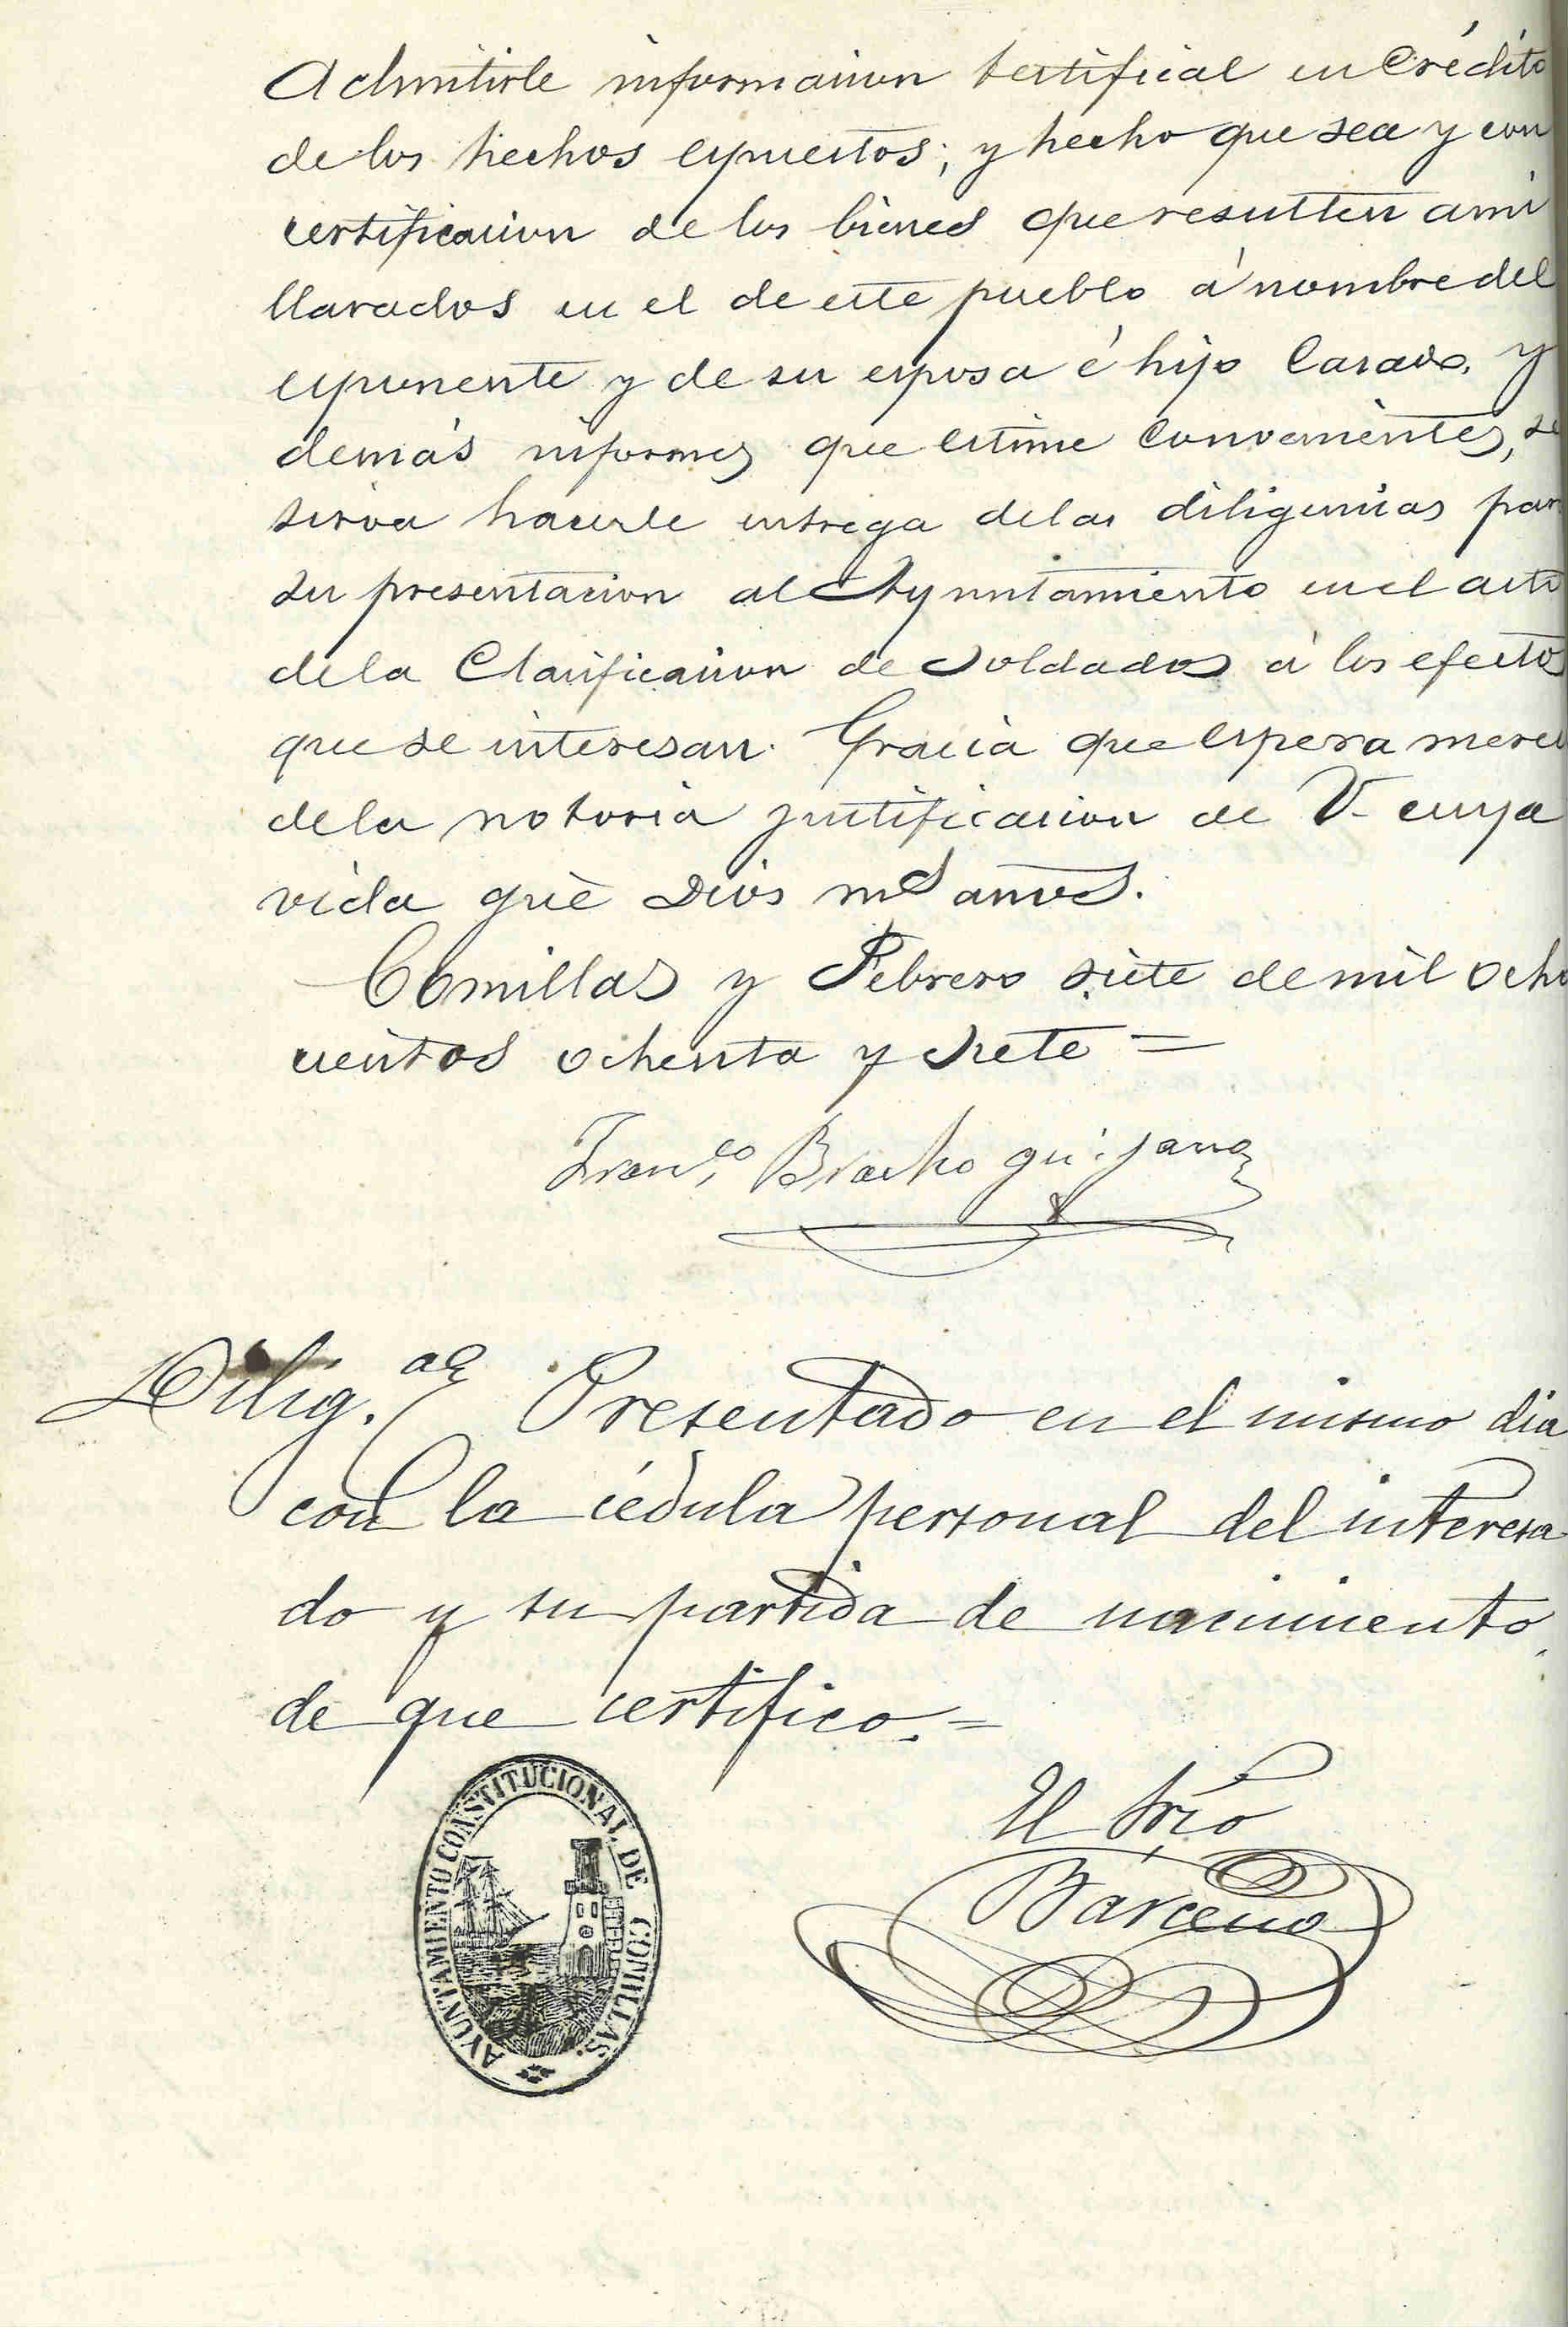 Admitirle informacion testifical en Crédito
de los hechos espuestos; y hecho que sea y con
certificacion de los bienes que resulten ami
llarados en el de este pueblo á nombre del
esponente y de su esposa é hijo Casado, y
demás informes que estime Convenientes, se
sirva hacerle entrega de las diligencias par
su presentacion al Ayuntamiento en el acto
de la Clasificacion de Soldados á los efectos
que se interesan. Gracia que espera merec
de la notoria justificacion de V. cuya
vida gue Dios ms años.
Comillas y Febrero siete de mil ocho
cientos ochenta y siete =
Franco Bracho Quijano
Dilig.a Presentado en el mismo dia
con la cédula personal del interesa
do y su partida de nacimiento,
de que certifico. =
El Srio
Bárcena
AYUNTAMIENTO CONSTITUCIONAL DE COMILLAS.